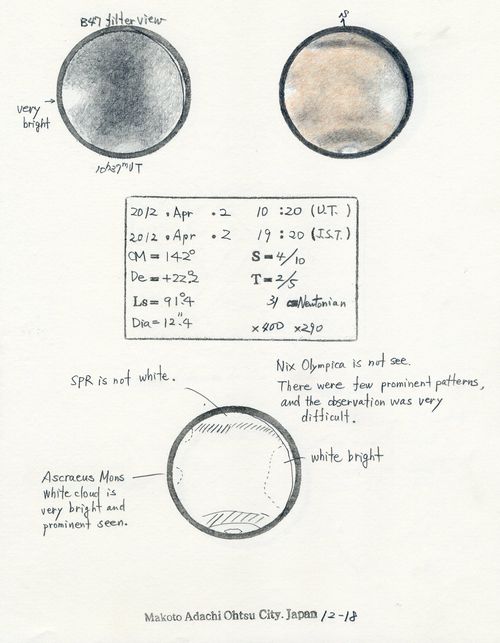 B47 filter view
very
bright
10h27m UT
2012 . Apr . 2 10 : 20 (U.T.)
2012 . Apr . 2 19 : 20 (J.S.T.)
CM = 142° S = 4/10
De = +22°.2 T = 2/5
Ls = 91°.4 31 cm Newtonian
Dia = 12".4 ×400 ×290
Nix Olympica is not see.
There were few prominent patterns,
and the observation was very
difficult.
SPR is not white.
white bright
Ascraeus Mons
white cloud is
very bright and
prominent seen.
Makoto Adachi Ohtsu City. Japan 12-18